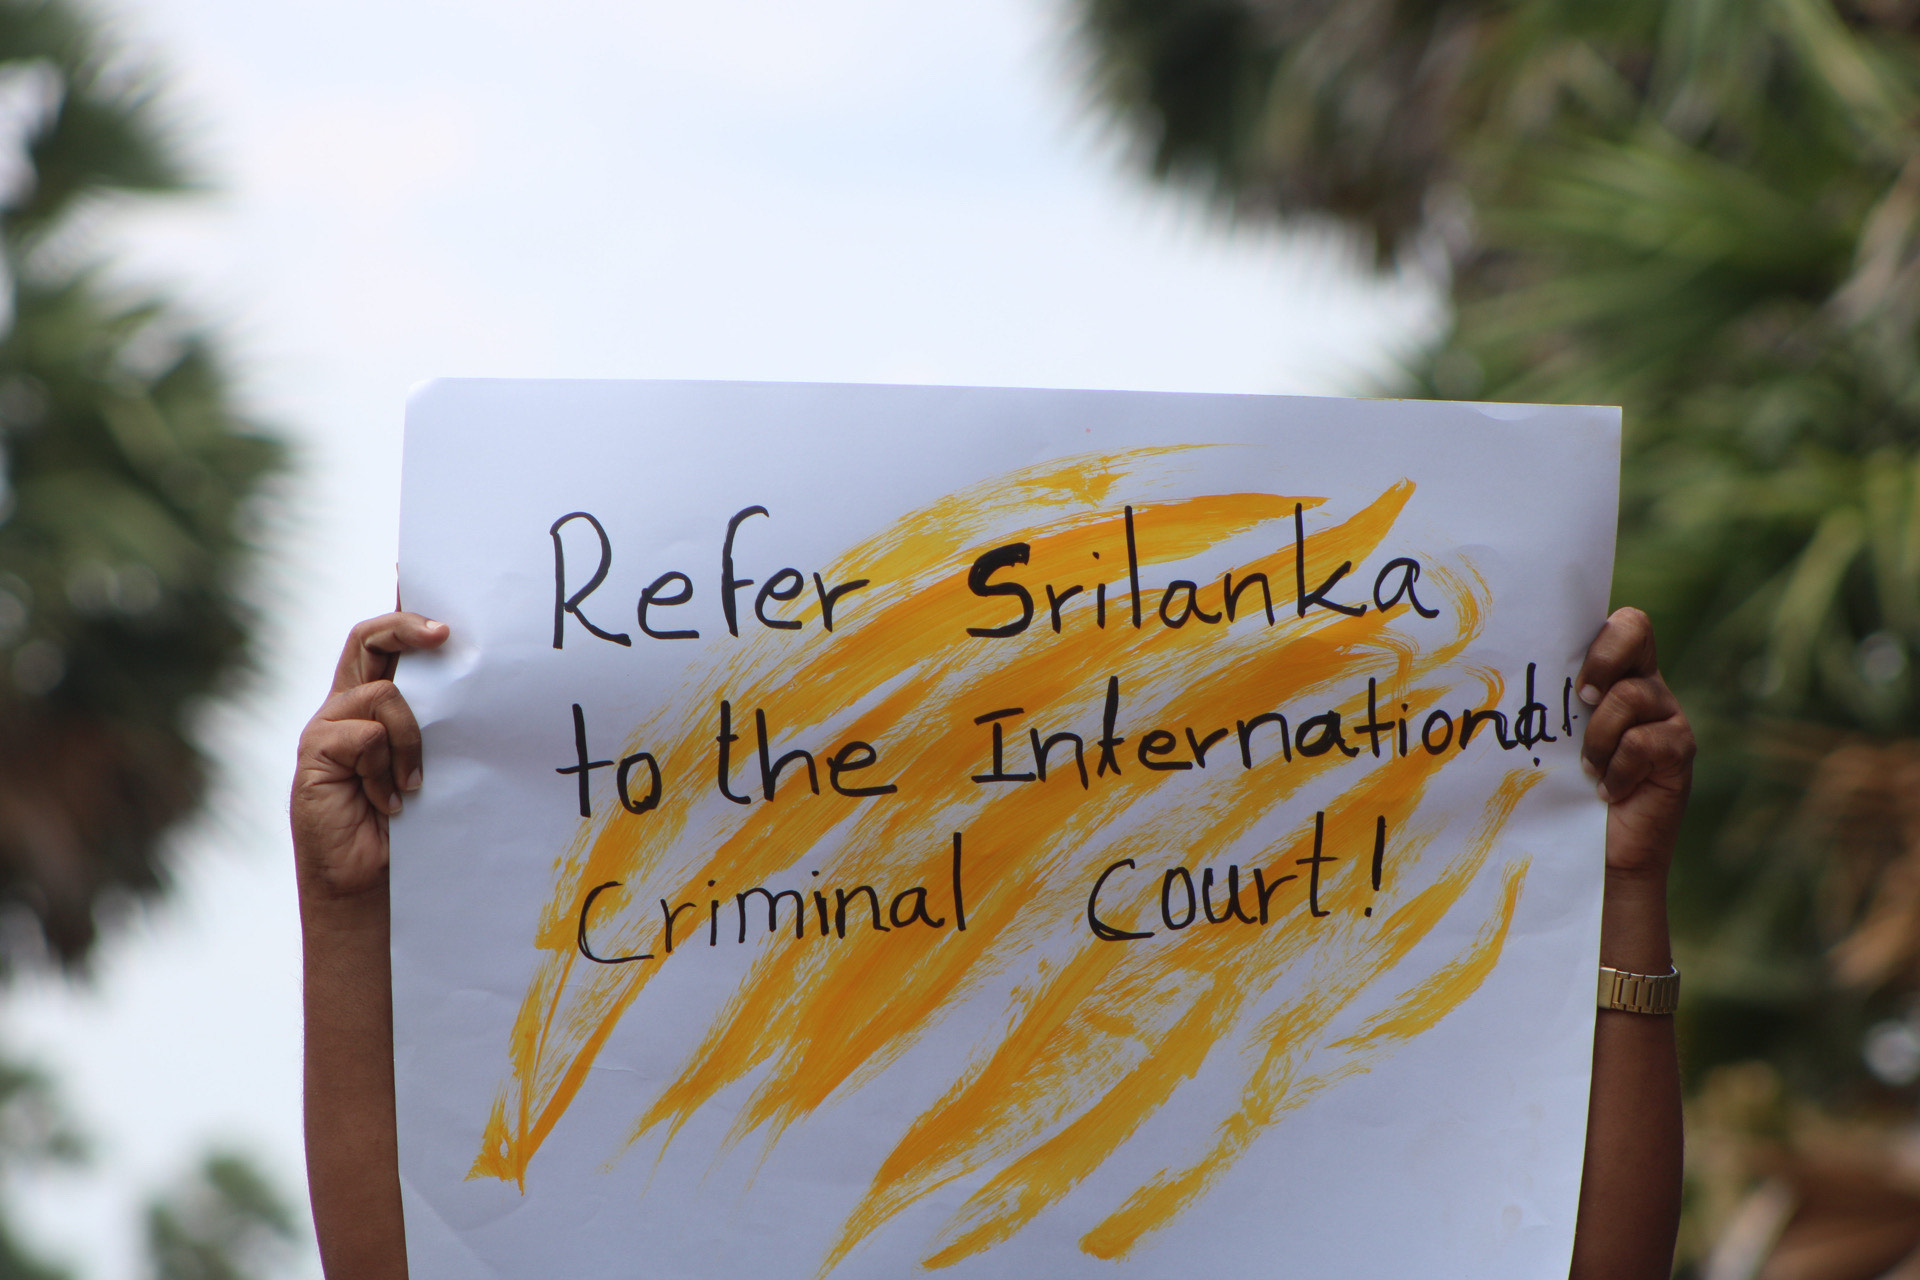 Refer Srilanka
to the International
Criminal Court!